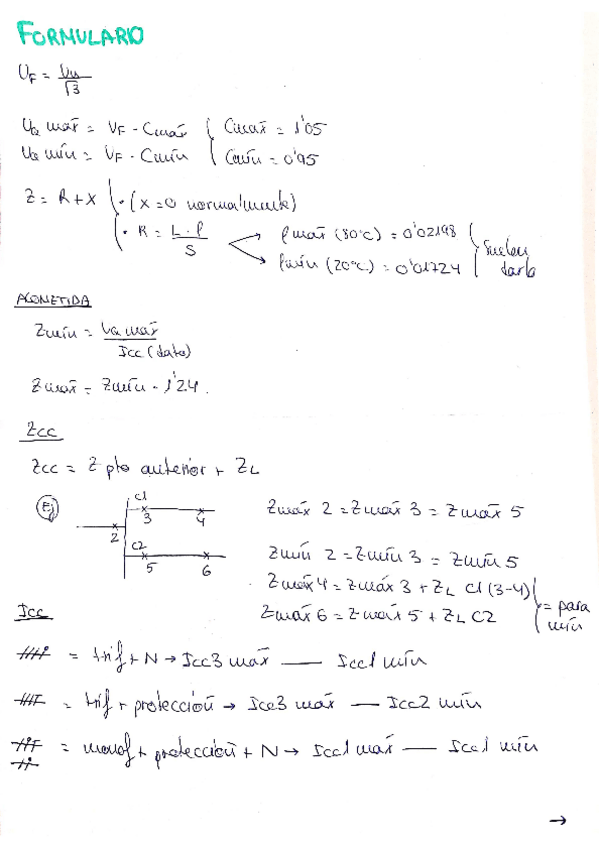 FORMULARIO
U_F = Un / √3
Ua máx = V_F · Cmáx { Cmáx = 1'05
Ua mín = V_F · Cmín { Cmín = 0'95
Z = R + X { · (X = 0 normalmente)
· R = L · ρ / S
ρ máx (80ºC) = 0'02198 } suelen darlo
ρ mín (20ºC) = 0'01724
ACOMETIDA
Zmín = Ua máx / Icc (dato)
Zmáx = Zmín · 1'24.
Zcc
Zcc = Z pto anterior + Z_L
Ej
C1
2 3 4
C2
5 6
Zmáx 2 = Zmáx 3 = Zmáx 5
Zmín 2 = Zmín 3 = Zmín 5
Zmáx 4 = Zmáx 3 + Z_L C1 (3-4)
Zmáx 6 = Zmáx 5 + Z_L C2 } = para mín
Icc
= trif + N → Icc3 máx — Icc1 mín
= trif + protección → Icc3 máx — Icc2 mín
= monof + protección + N → Icc1 máx — Icc1 mín
→